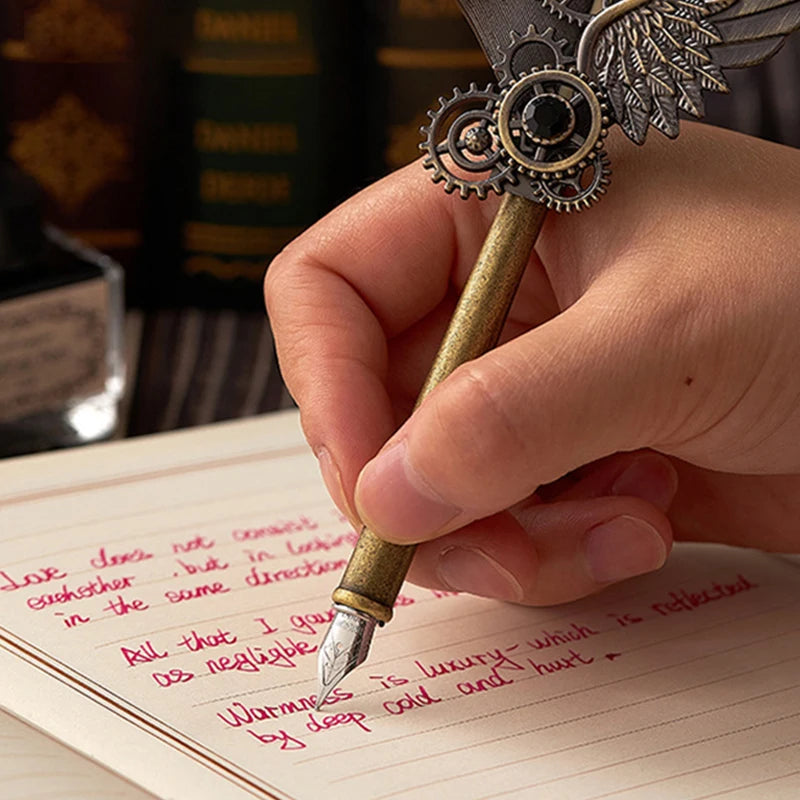 DANIEL
DANIEL
Love does not consist
eachother . but in looking
in the same direction
All that I gave
as negligble
Warmness is luxury-which is reflected
by deep cold and hurt